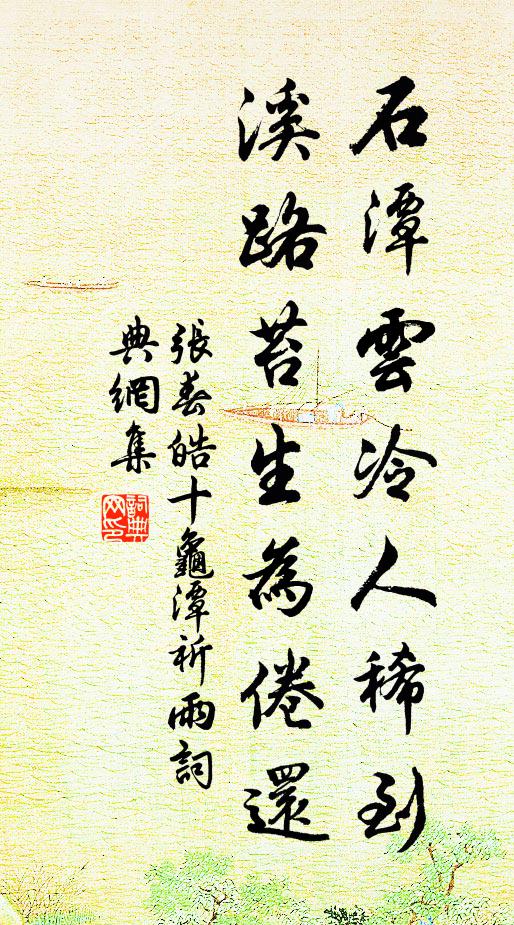 石潭雲冷人稀到
溪路苔生為倦還
張春皓十龜潭祈雨詞
典網集
詞典網印